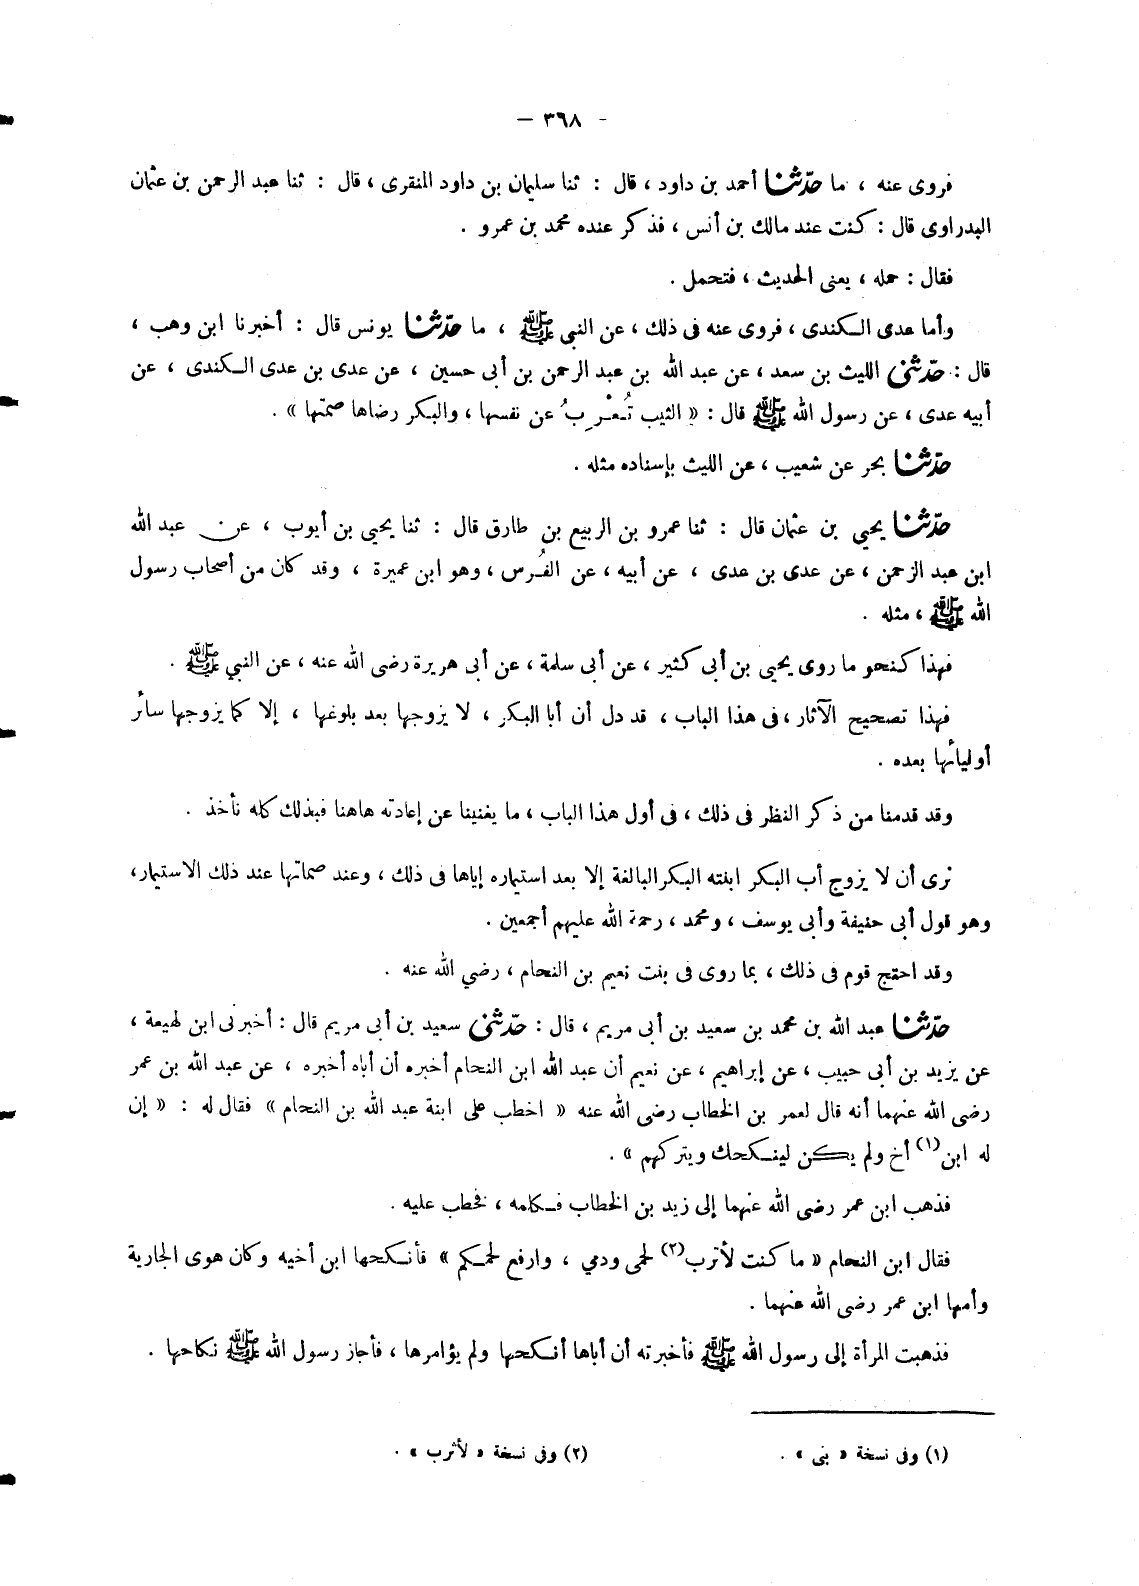 - ٣٦٨ -
فروى عنه ، ما حدّثنا أحمد بن داود ، قال : ثنا سليمان بن داود المنقرى ، قال : ثنا عبد الرحمن بن عثمان
البدراوى قال : كنت عند مالك بن أنس ، فذكر عنده محمد بن عمرو .
فقال : حمله ، يعنى الحديث ، فتحمل .
وأما عدى الكندى ، فروى عنه فى ذلك ، عن النبي ﷺ ، ما حدّثنا يونس قال : أخبرنا ابن وهب ،
قال : حدّثنى الليث بن سعد ، عن عبد الله بن عبد الرحمن بن أبى حسين ، عن عدى بن عدى الكندى ، عن
أبيه عدى ، عن رسول الله ﷺ قال : « الثيب تُعْرِبُ عن نفسها ، والبكر رضاها صمتها » .
حدّثنا بحر عن شعيب ، عن الليث بإسناده مثله .
حدّثنا يحيي بن عثمان قال : ثنا عمرو بن الربيع بن طارق قال : ثنا يحيي بن أيوب ، عن عبد الله
ابن عبد الرحمن ، عن عدى بن عدى ، عن أبيه ، عن الفُرس ، وهو ابن عميرة ، وقد كان من أصحاب رسول
الله ﷺ ، مثله .
فهذا كنحو ما روى يحيى بن أبى كثير ، عن أبى سلمة ، عن أبى هريرة رضى الله عنه ، عن النبي ﷺ .
فهذا تصحيح الآثار ، فى هذا الباب ، قد دل أن أبا البكر ، لا يزوجها بعد بلوغها ، إلا كما يزوجها سائر
أوليائها بعده .
وقد قدمنا من ذكر النظر فى ذلك ، فى أول هذا الباب ، ما يغنينا عن إعادته هاهنا فبذلك كله نأخذ .
نرى أن لا يزوج أب البكر ابنته البكر البالغة إلا بعد استيماره إياها فى ذلك ، وعند صماتها عند ذلك الاستيمار،
وهو قول أبى حنيفة وأبى يوسف ، ومحمد ، رحمة الله عليهم أجمعين .
وقد احتج قوم فى ذلك ، بما روى فى بنت نعيم بن النحام ، رضي الله عنه .
حدّثنا عبد الله بن محمد بن سعيد بن أبى مريم ، قال : حدّثنى سعيد بن أبى مريم قال : أخبرنى ابن لهيعة ،
عن يزيد بن أبى حبيب ، عن إبراهيم ، عن نعيم أن عبد الله ابن النحام أخبره أن أباه أخبره ، عن عبد الله بن عمر
رضى الله عنهما أنه قال لعمر بن الخطاب رضى الله عنه « اخطب على ابنة عبد الله بن النحام » فقال له : « إن
له ابن(١) أخ ولم يكن لينكحك ويتركهم » .
فذهب ابن عمر رضى الله عنهما إلى زيد بن الخطاب فكلمه ، فخطب عليه .
فقال ابن النحام « ما كنت لأترب(٢) لحمى ودمي ، وارفع لحمكم » فأنكحها ابن أخيه وكان هوى الجارية
وأمها ابن عمر رضى الله عنهما .
فذهبت المرأة إلى رسول الله ﷺ فأخبرته أن أباها أنكحها ولم يؤامرها ، فأجاز رسول الله ﷺ نكاحها .
(١) وفى نسخة « بنى » . (٢) وفى نسخة « لأثرب » .